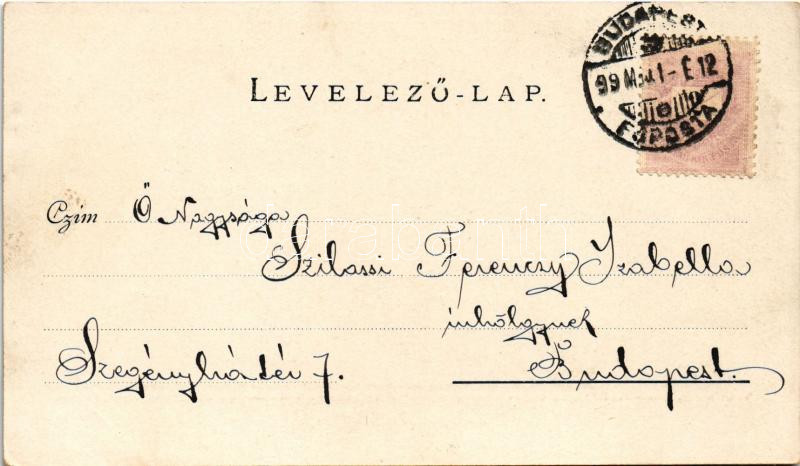 BUDAPEST
99 MÁJ. 1 - É 12
FŐPOSTA
LEVELEZŐ-LAP.
Czím Ő Nagysága
Szilassi Ferenczy Izabella
úrhölgynek
Szegényház tér 7. Budapest.